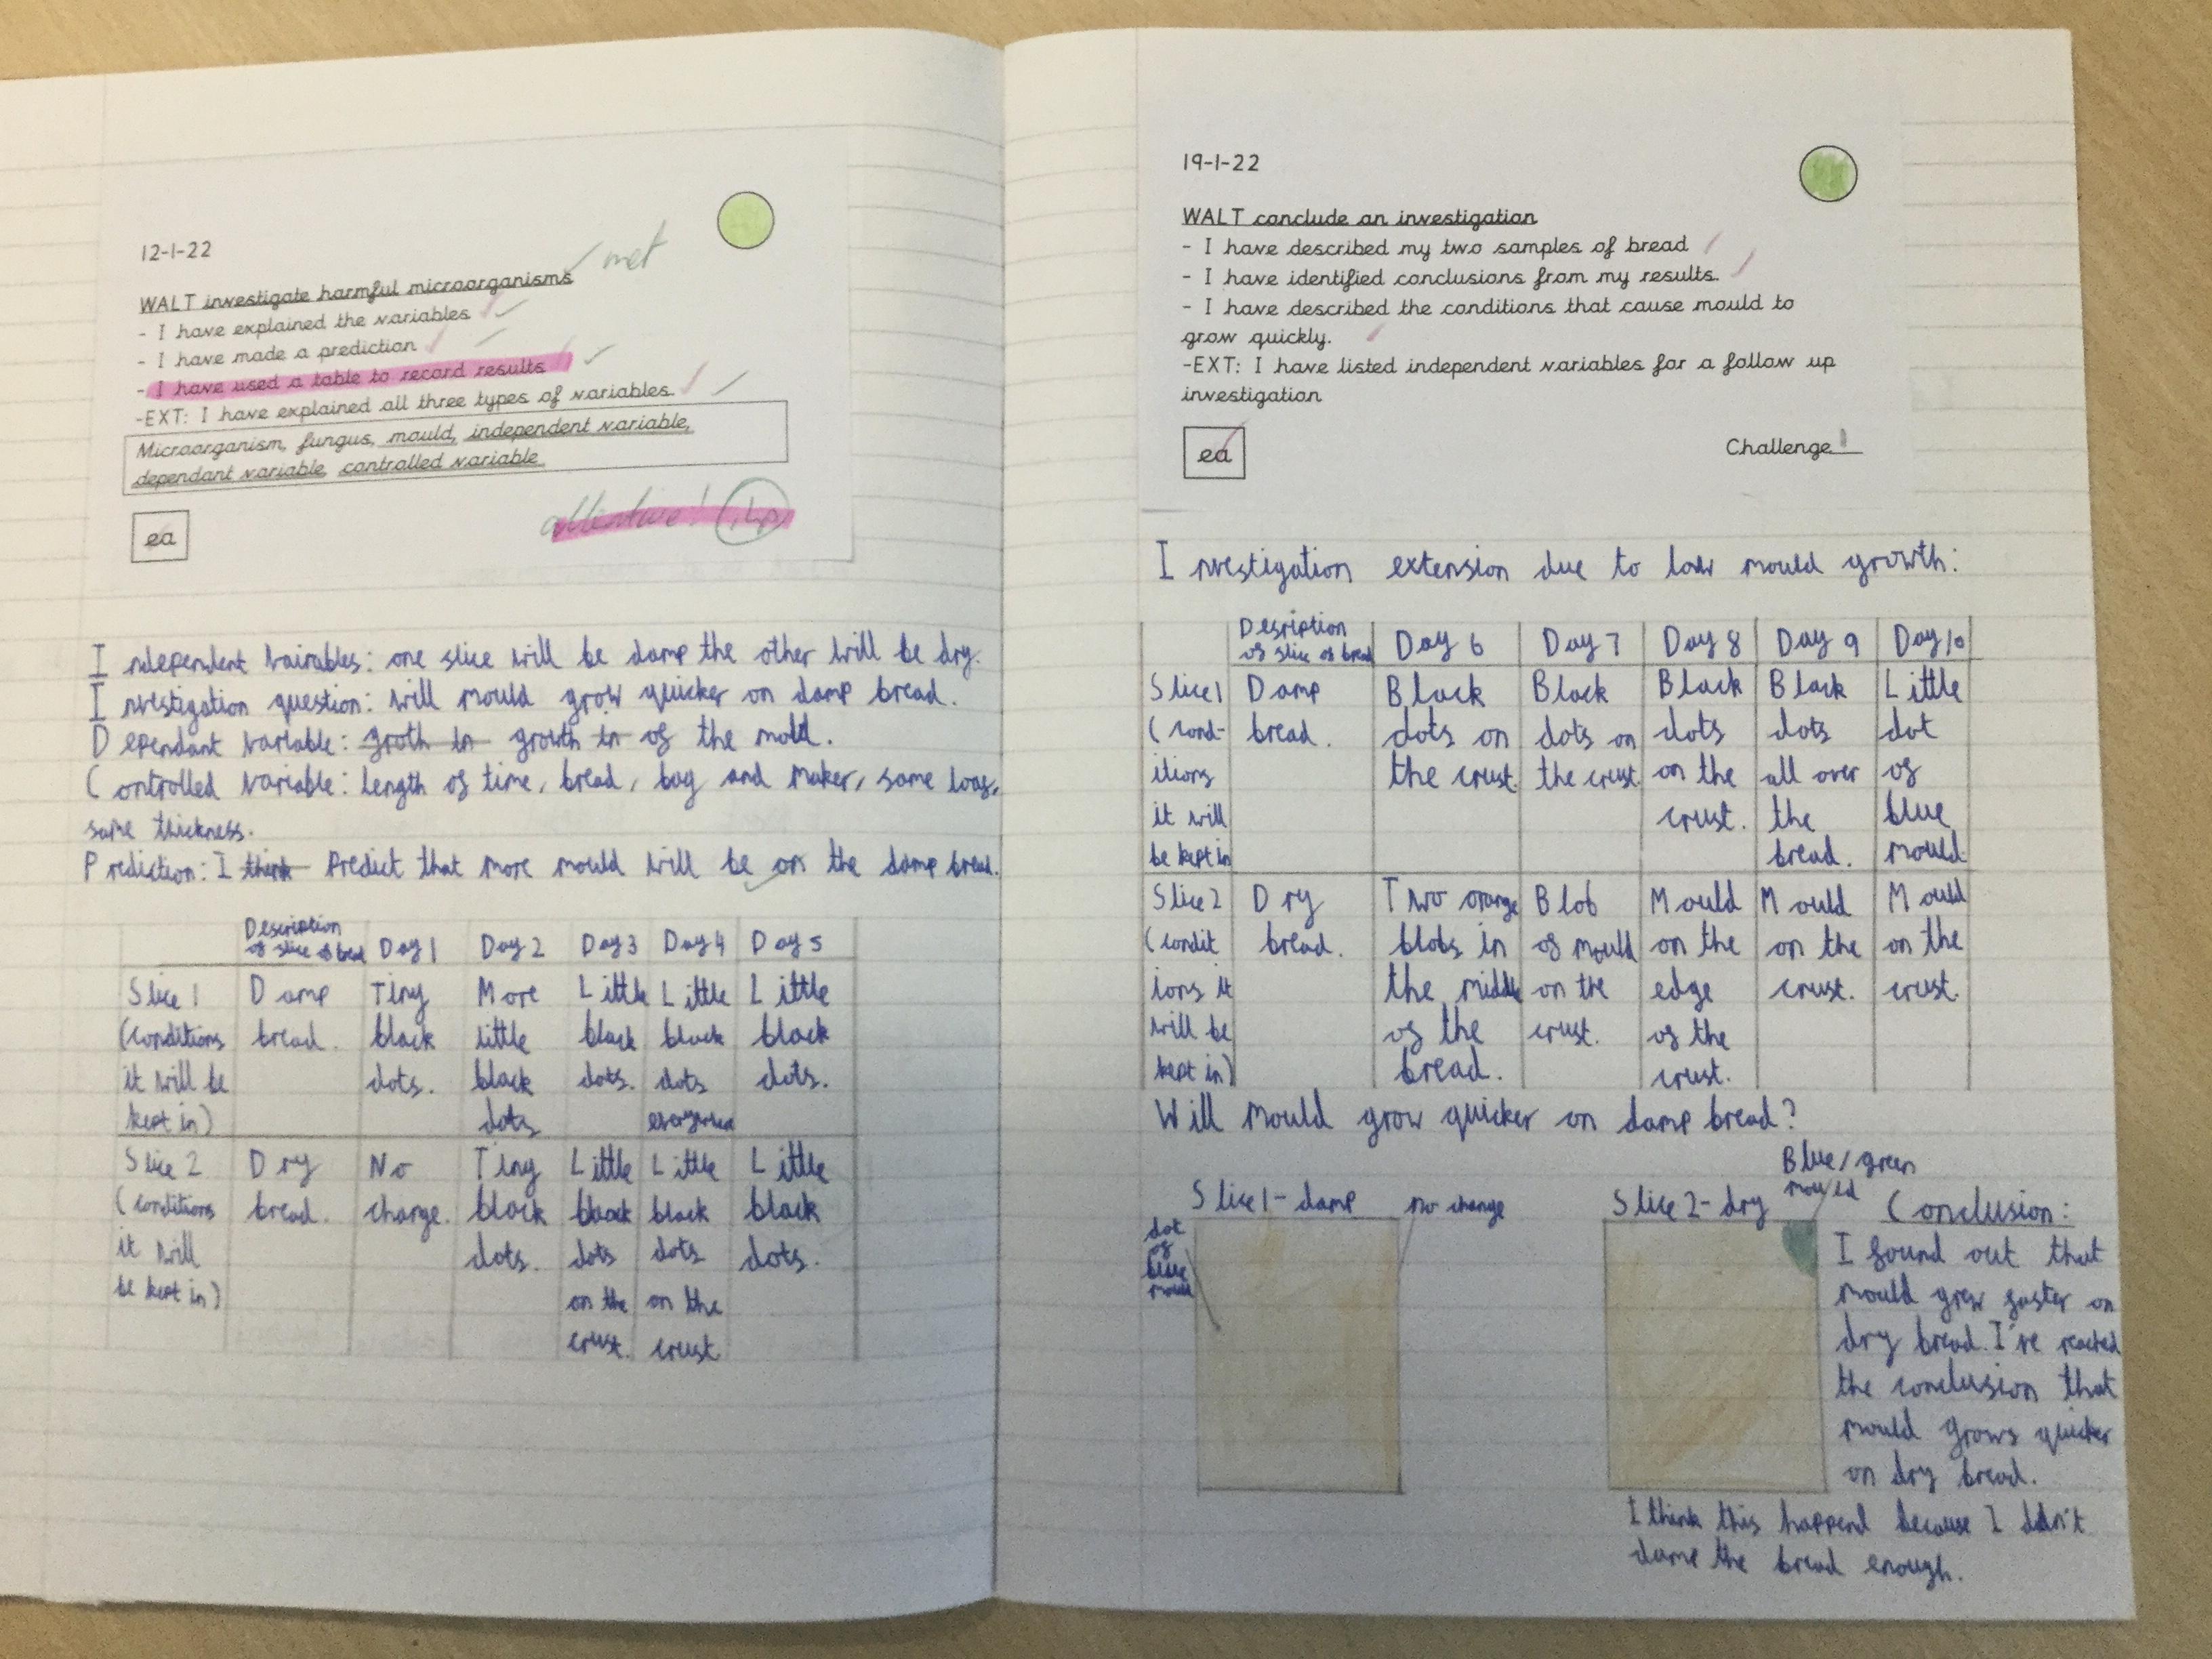 12-1-22
met
WALT investigate harmful microorganisms
- I have explained the variables
- I have made a prediction
- I have used a table to record results
-EXT: I have explained all three types of variables.
Microorganism, fungus, mould, independent variable,
dependant variable, controlled variable
attentive! 1hp
ea
Independent vairables: one slice will be damp the other will be dry.
Investigation question: will mould grow quicker on damp bread.
Dependant variable: groth in growth in of the mould.
Controlled variable: length of time, bread, bag and maker, same loaf,
same thickness.
Prediction: I think Predict that more mould will be on the damp bread.
Description of slice of bread Day 1 Day 2 Day 3 Day 4 Day 5
Slice 1 Damp Tiny More Little Little Little
(conditions bread. black little black black black
it will be dots. black dots. dots dots.
kept in) dots
Slice 2 Dry No Tiny Little Little Little
(conditions bread. change. black black black black
it will dots. dots dots dots.
be kept in) on the on the
crust. crust
19-1-22
WALT conclude an investigation
- I have described my two samples of bread
- I have identified conclusions from my results.
- I have described the conditions that cause mould to
grow quickly.
-EXT: I have listed independent variables for a follow up
investigation
ea
Challenge 1
Investigation extension due to low mould growth:
Desription
of slice of bread Day 6 Day 7 Day 8 Day 9 Day 10
Slice 1 Damp Black Black Black Black Little
(cond- bread. dots on dots on dots dots dot
itions the crust. the crust. on the all over of
it will crust. the blue
be kept in bread. mould.
Slice 2 Dry Two orange Blob Mould Mould Mould
(condit bread. blobs in of mould on the on the on the
ions it the middle on the edge crust. crust.
will be of the crust. of the
kept in) bread. crust.
Will mould grow quicker on damp bread?
Slice 1-damp
no change
dot
of
blue
mould
Slice 2-dry
Blue/green
mould
Conclusion:
I found out that
mould grew faster on
dry bread. I've reached
the conclusion that
mould grows quicker
on dry bread.
I think this happend because I didn't
damp the bread enough.